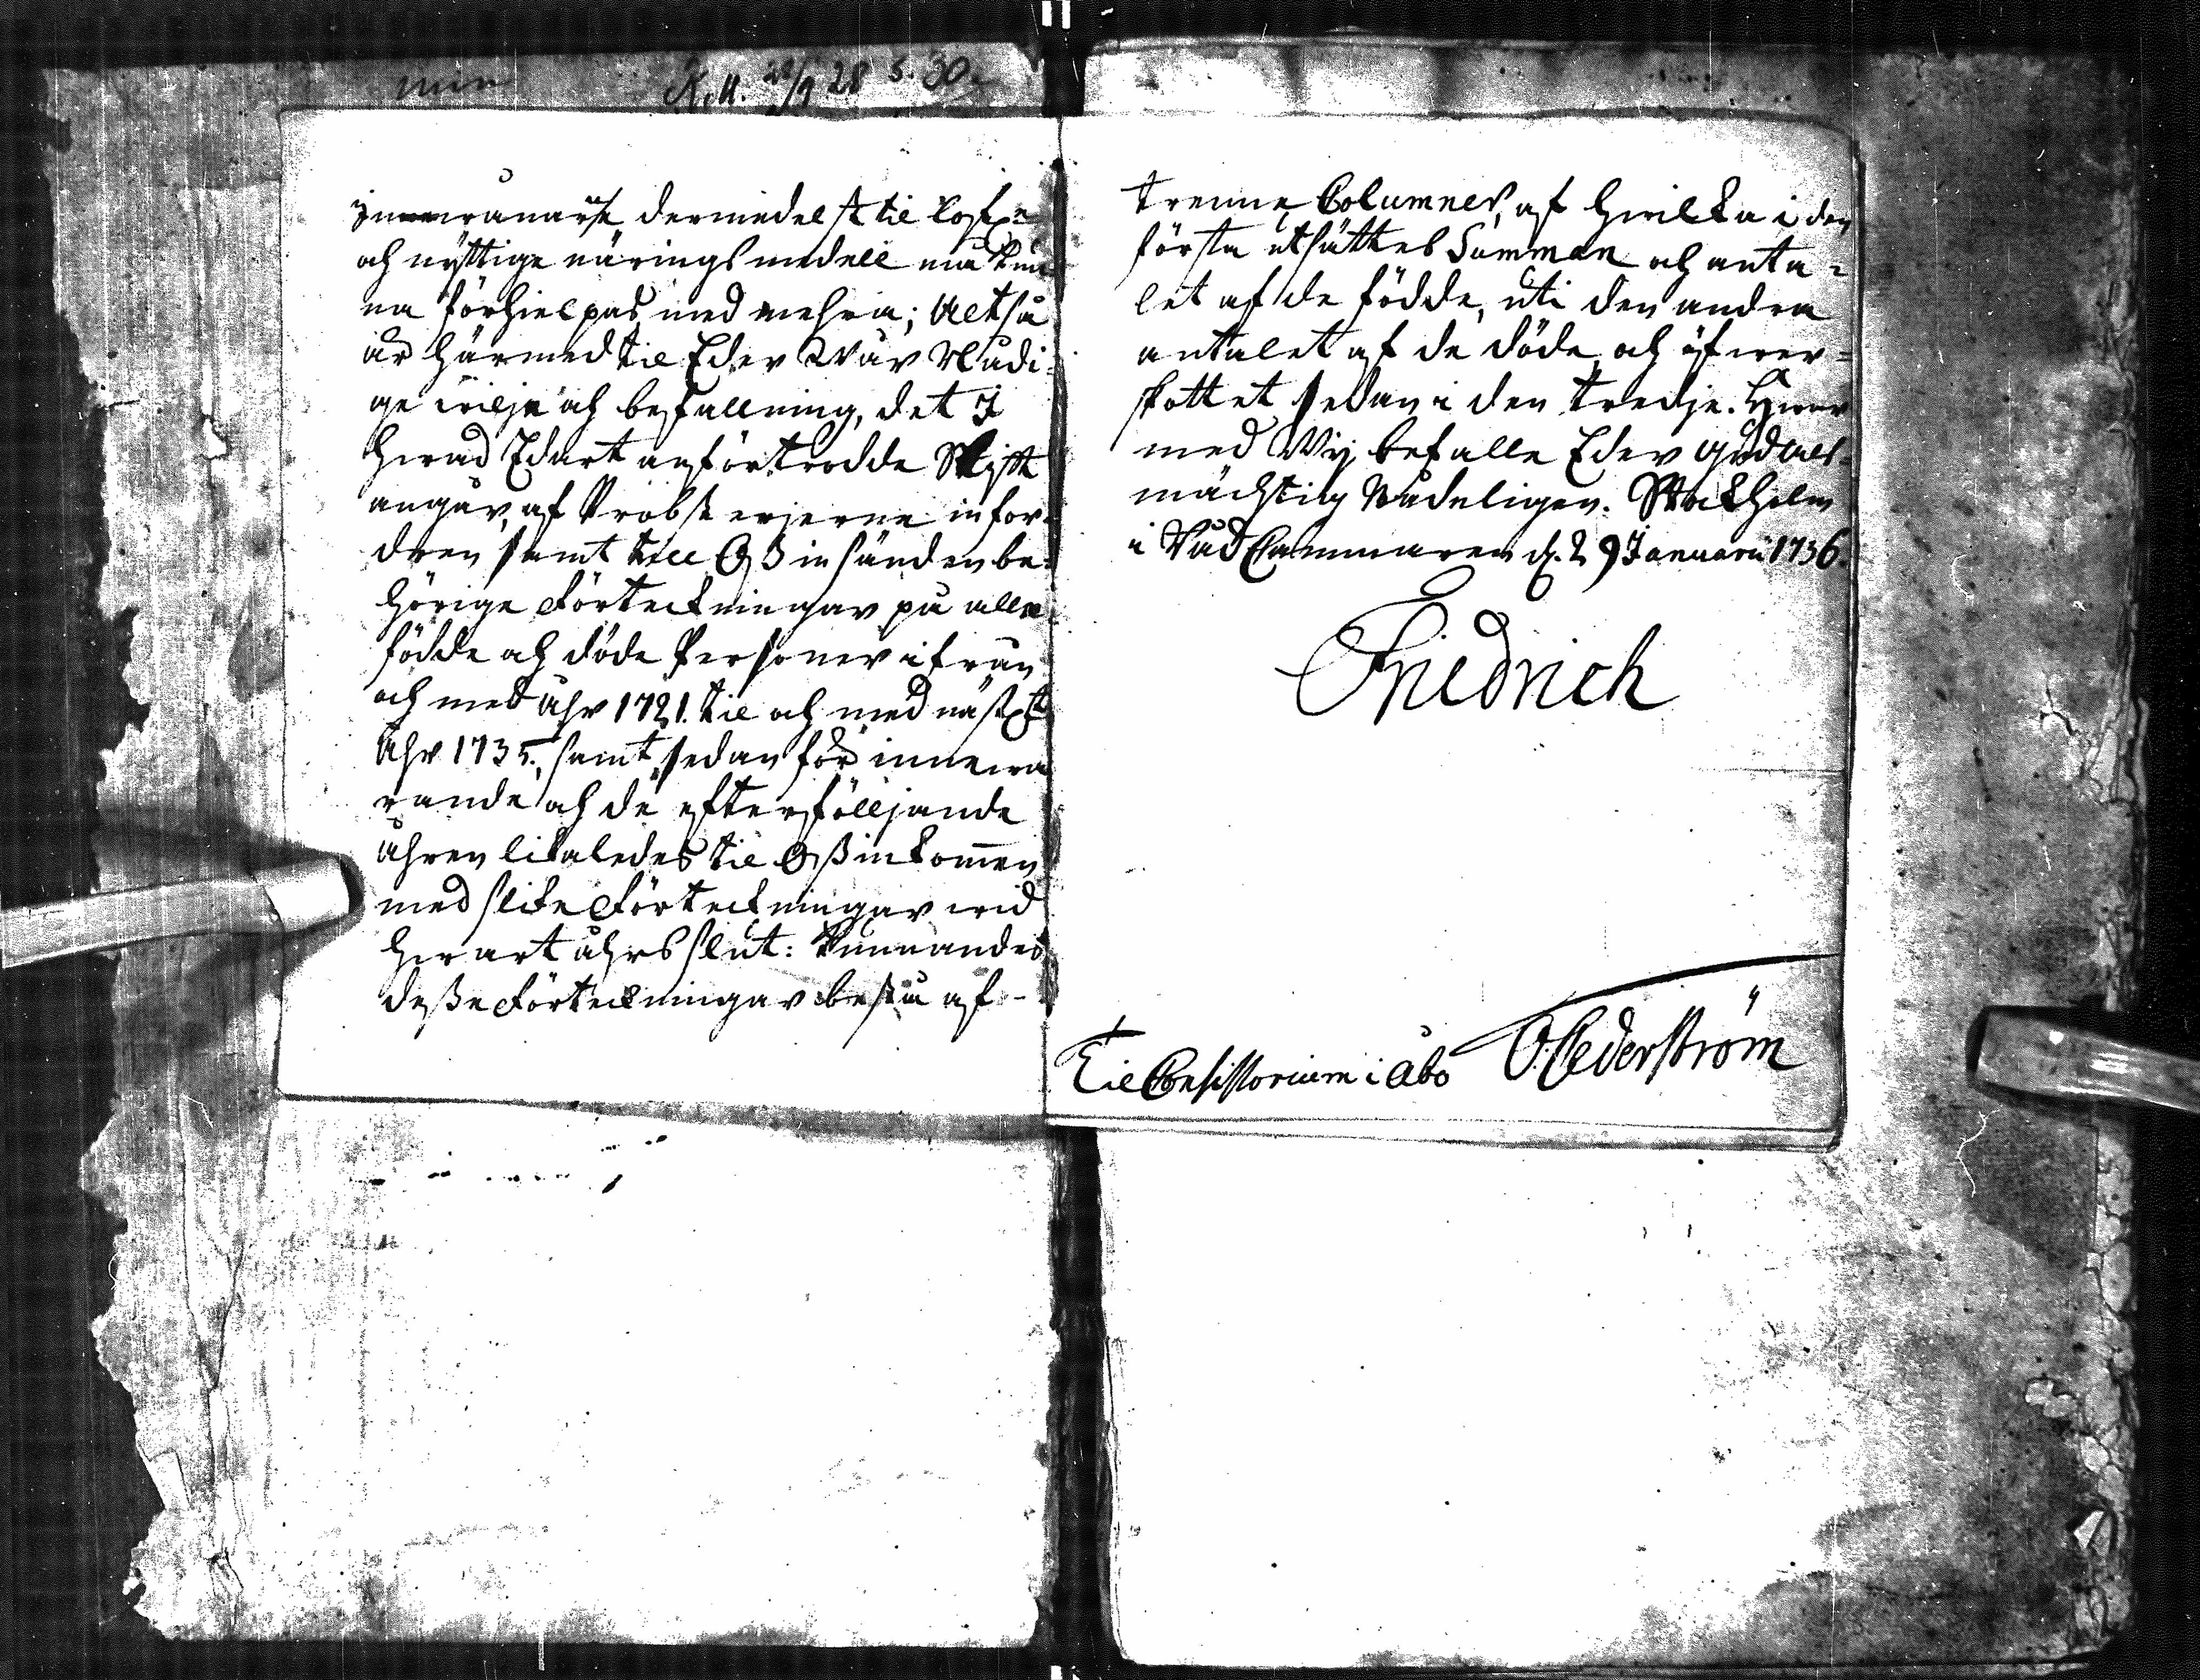 K.M. 29/9 28 s. 30.
dermedelst til
och nyttige närings medell må kun
na förhielpas med mehra; Altså
är härmed til Eder Wår Nådi-
ge wilja och befallning, det I
hwad Edart anförtrodde Stifft
angår, af Probsterierne infor-
dren samt till Oß insänden be-
hörige Förteckningar på alla
födde och döde Personer ifrån
och med åhr 1721. til och med näst
åhr 1735. samt sedan för innewa
rande och de efterfölljande
åhren likaledes til Oß inkommen
med slike Förteckningar wid
hwart åhrs slut: kunnandes
deße Förteckningar bestå af -
trenne Columner, af hwilka i den
första utsättes Summan och anta-
let af de födde, uti den andra
antalet af de döde och öfwer-
skottet sedan i den tredje. Hwar
med Wij befalle Eder Gud All-
mächtig Nådeligen. Stockholm
i Råd Cammaren d. 29 Januarii 1736.
Friedrich
Til Consistorium i Åbo
O. Cederström